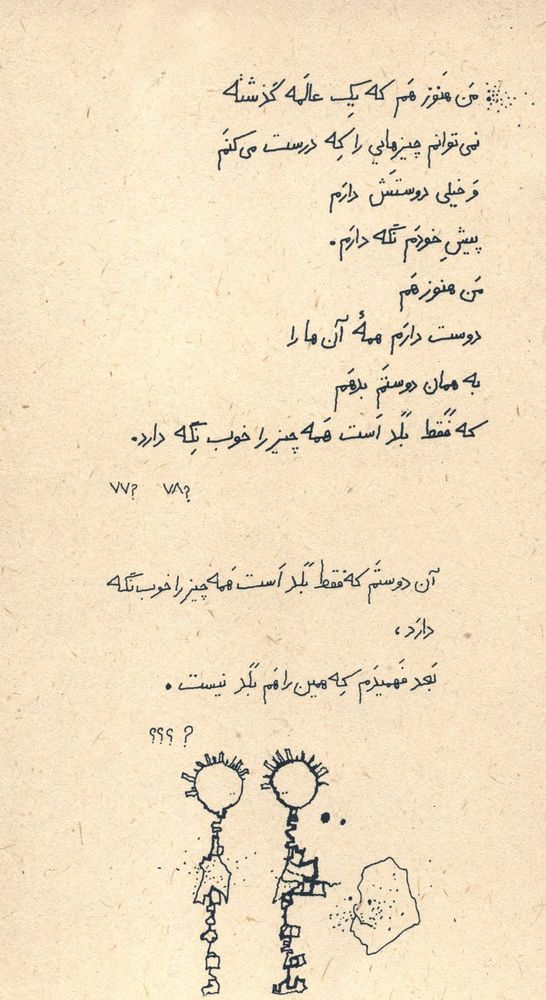 مَن هَنوز هَم که یِک عالَمه گُذشته
نمی‌توانَم چیزهایی را که درست می‌کنَم
وَ خیلی دوستَش دارَم
پیشِ خودَم نگه دارَم.
مَن هنوز هَم
دوست دارَم همهٔ آن ها را
به همان دوستَم بدهَم
که فَقَط بَلَد اَست هَمه چیز را خوب نِگه دارد.
۷۸؟ ۷۷؟
آن دوستَم که فقط بَلَد اَست هَمه چیز را خوب نگه
دارَد،
بَعد فَهمیدَم که همین را هَم بَلَد نیست.
؟ ؟؟؟